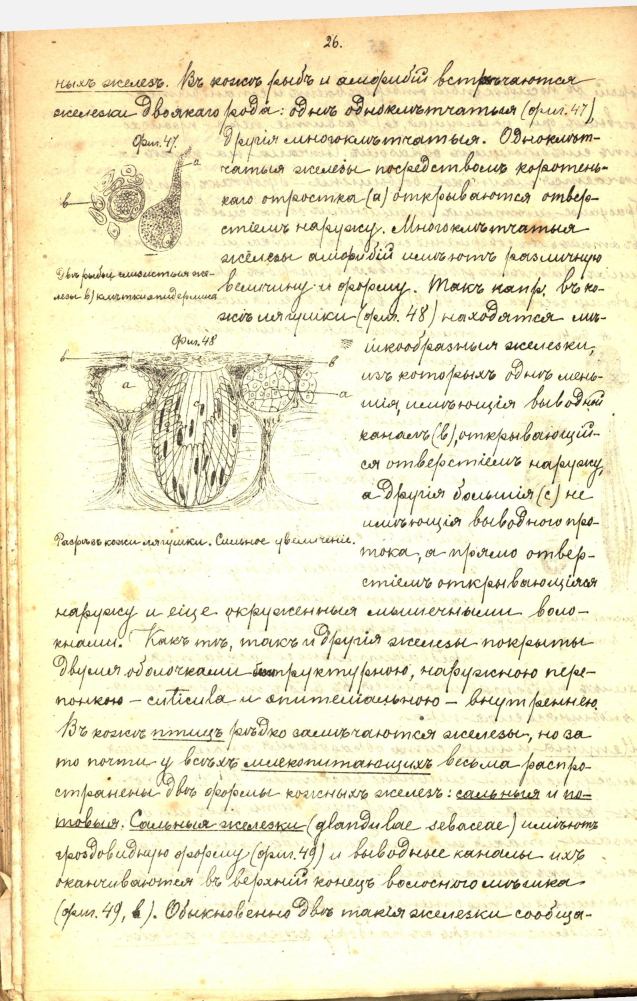 26.
ныхъ железъ. Въ кожѣ рыбъ и амфибій встрѣчаются
железки двоякаго рода: однѣ одноклѣтчатыя (фиг. 47),
Фиг. 47.
а
в
Двѣ рыбьи слизистыя же-
лезы в) клѣтки эпидермиса
другія многоклѣтчатыя. Одноклѣт-
чатыя железы посредствомъ коротень-
каго отростка (а) открываются отвер-
стіемъ наружу. Многоклѣтчатыя
железы амфибій имѣютъ различную
величину и форму. Такъ напр. въ ко-
жѣ лягушки (фиг. 48) находятся мѣ-
Фиг. 48
в
в
а
а
с
Разрѣзъ кожи лягушки. Сильное увеличеніе.
шкообразныя железки,
изъ которыхъ однѣ мень-
шія, имѣющія выводной
каналъ (в), открывающій-
ся отверстіемъ наружу,
а другія большія (с) не
имѣющія выводного про-
тока, а прямо отвер-
стіемъ открывающіяся
наружу и еще окруженныя мышечными воло-
кнами. Какъ тѣ, такъ и другія железы покрыты
двумя оболочками безструктурною, наружною пере-
понкою – cuticula и эпителіальною – внутреннею.
Въ кожѣ птицъ рѣдко замѣчаются железы, но за
то почти у всѣхъ млекопитающихъ весьма распро
странены двѣ формы кожныхъ железъ: сальныя и по-
товыя. Сальныя железки (glandulae sebaceae) имѣютъ
гроздовидную форму (фиг. 49) и выводные каналы ихъ
оканчиваются въ верхній конецъ волосного мѣшка
(фиг. 49, в). Обыкновенно двѣ такія железки сообща-